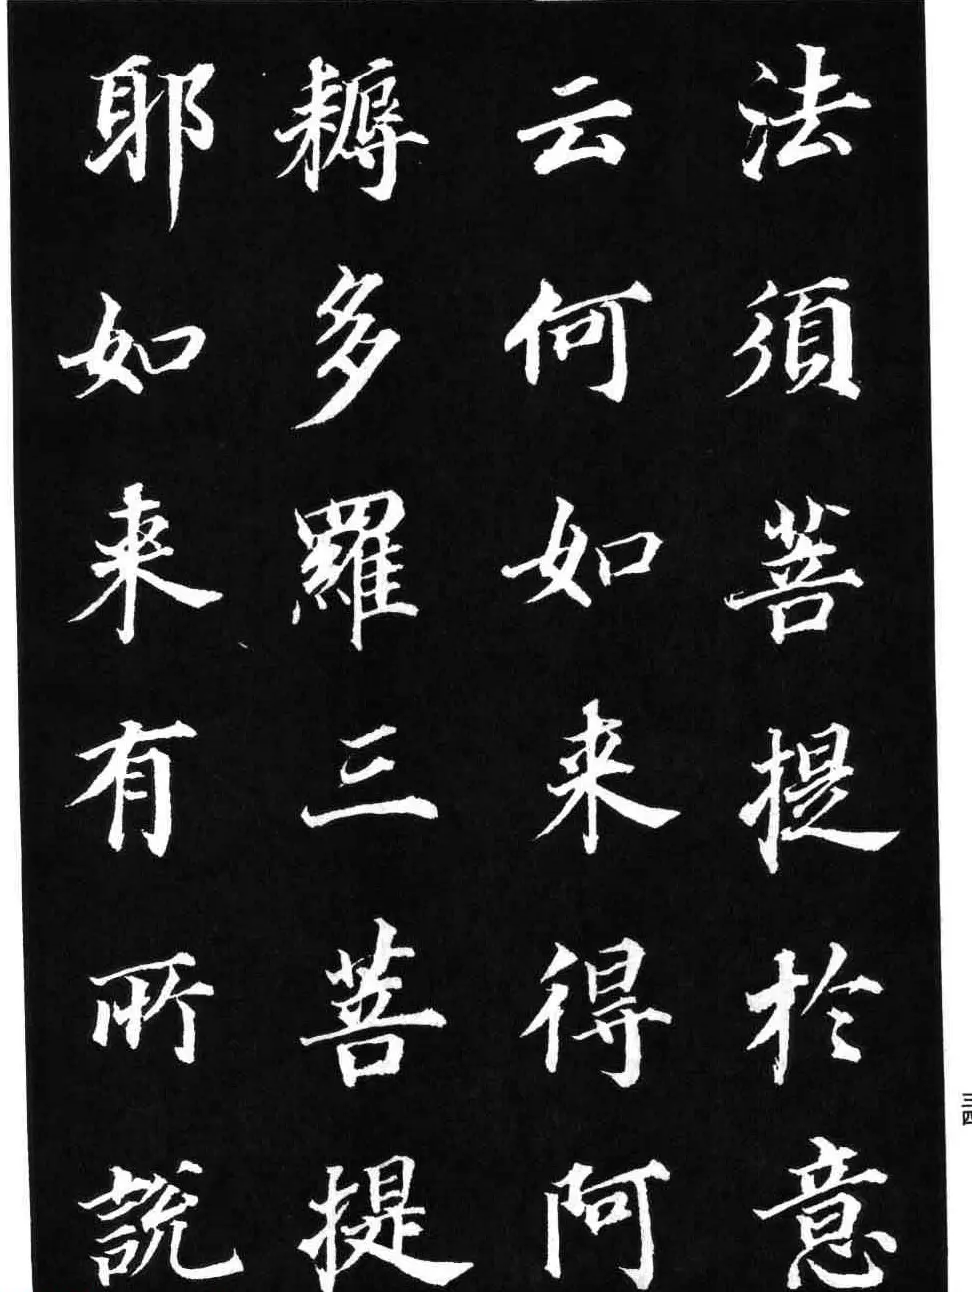 法須菩提於意
云何如来得阿
耨多羅三菩提
耶如来有所說
三四